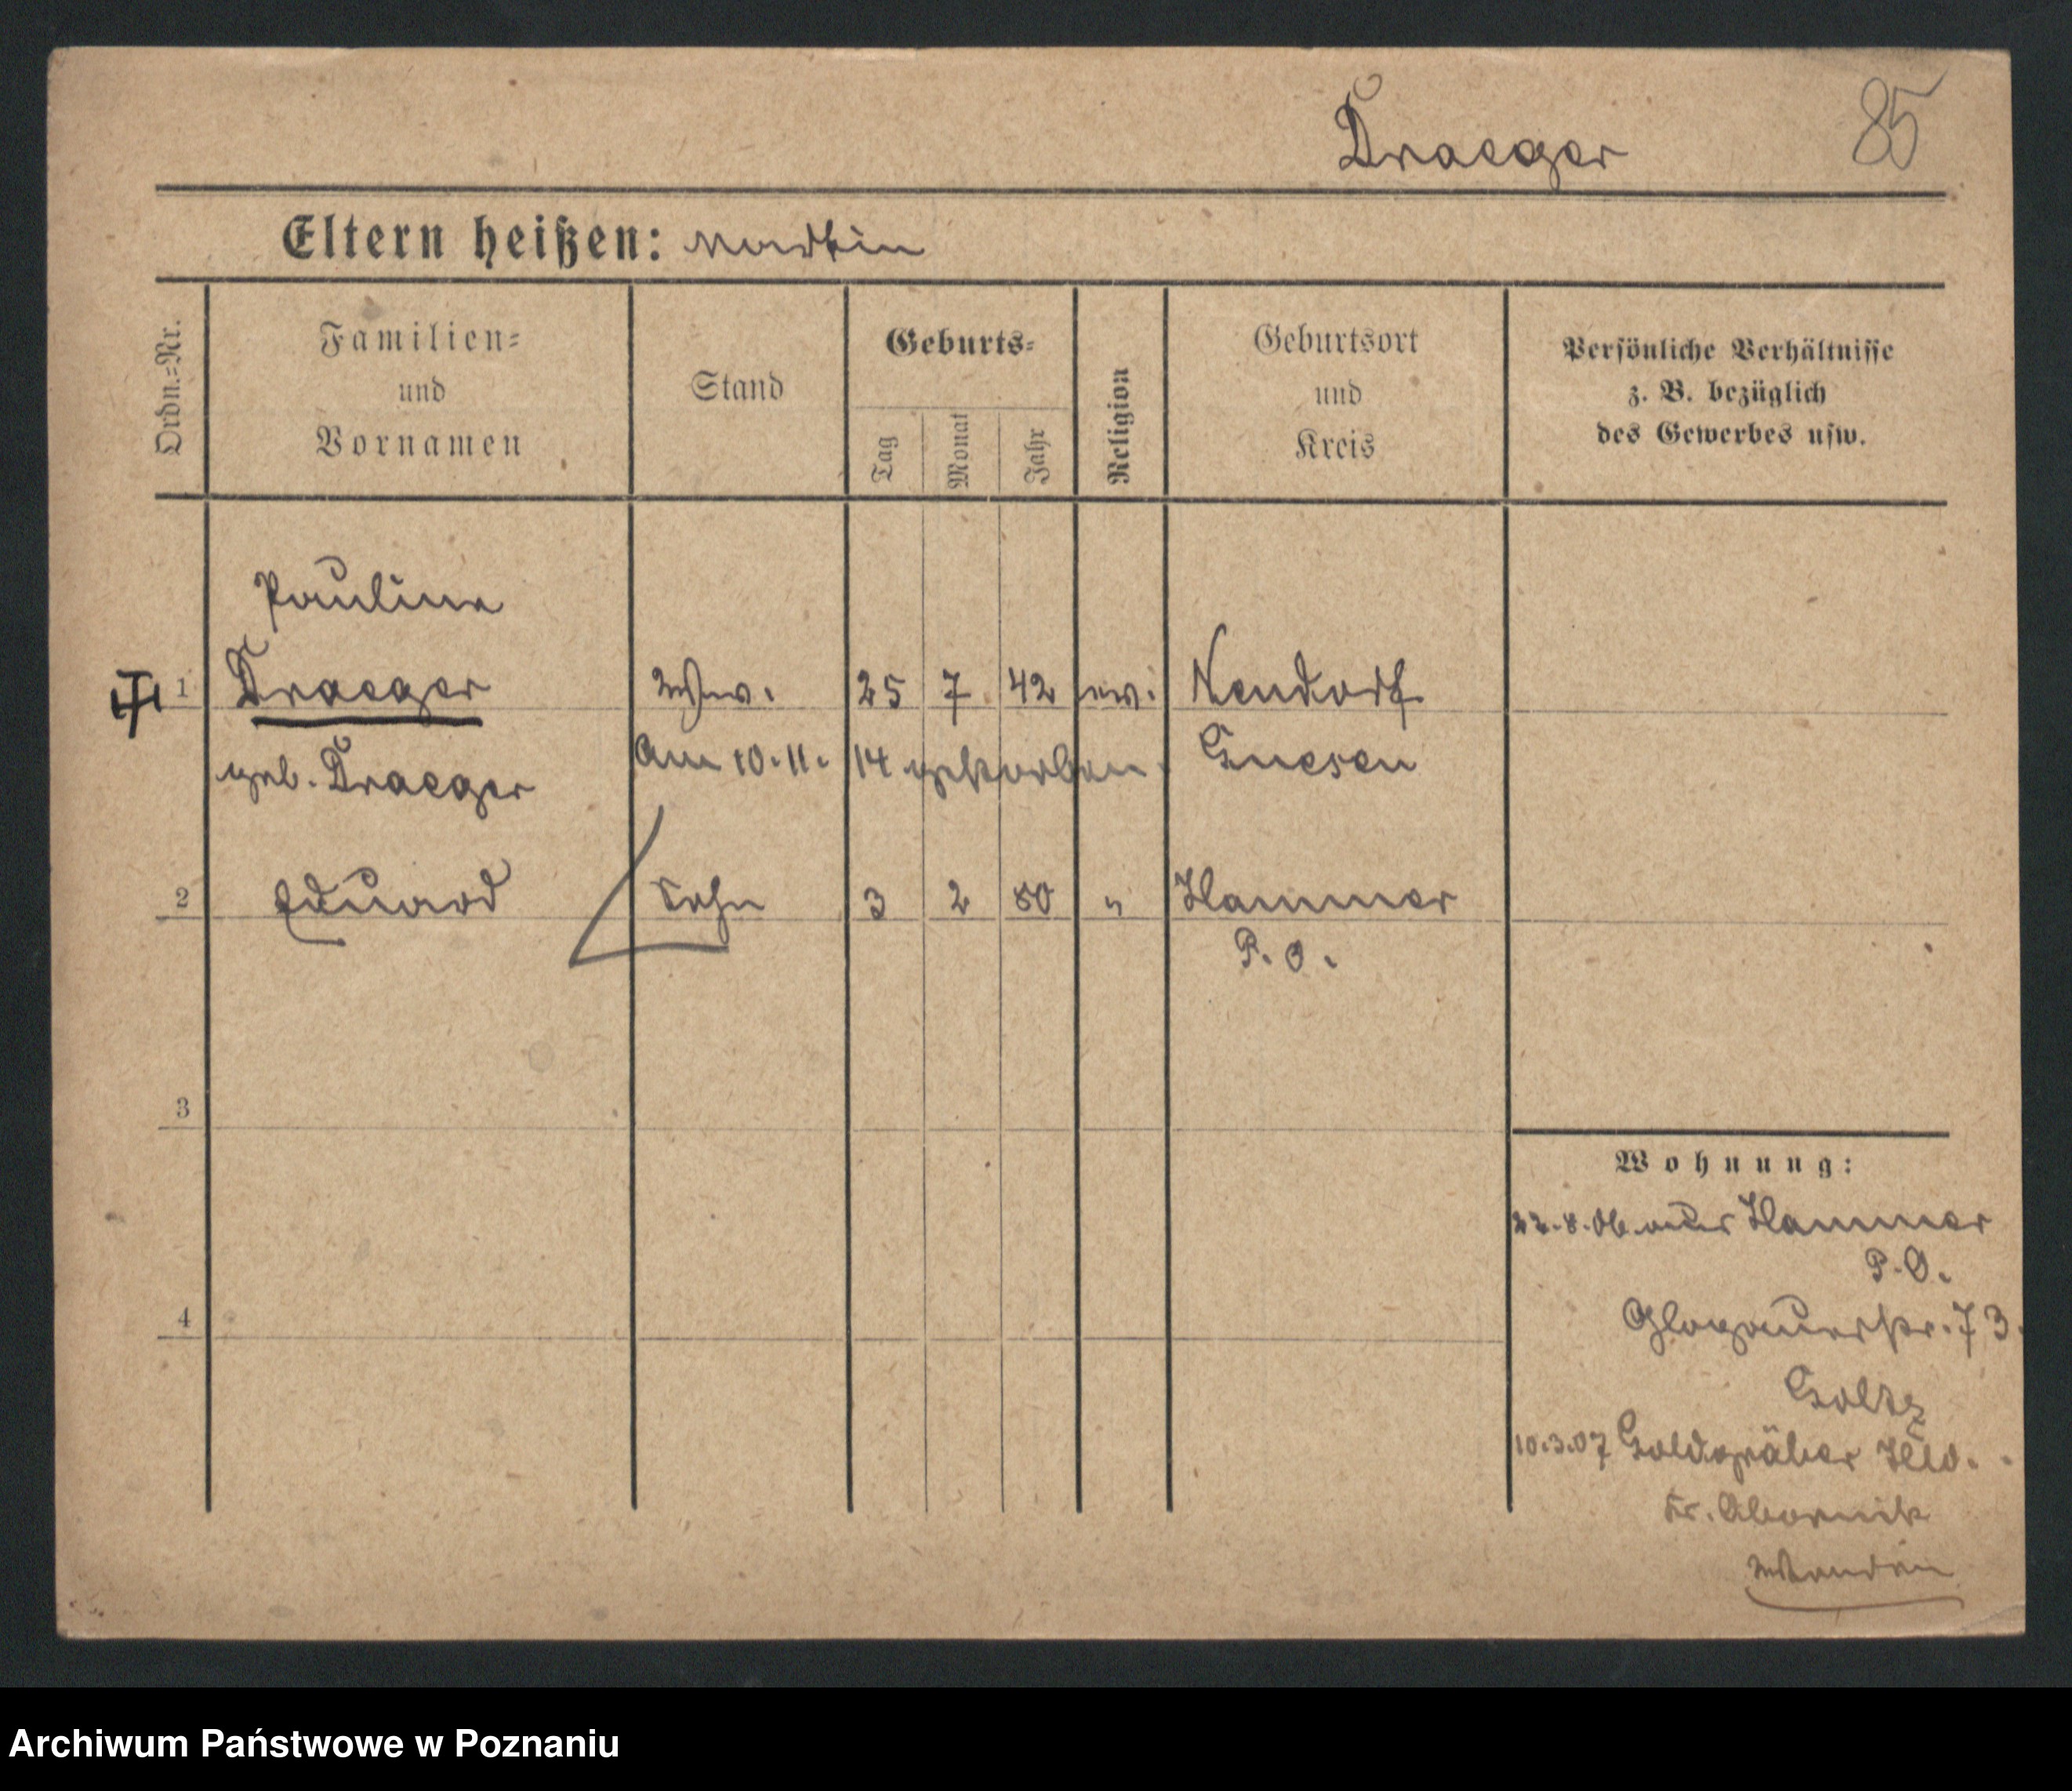 Draeger 85
Eltern heißen: Martin
Ordn.=Nr.
Familien=
und
Vornamen
Stand
Geburts=
Tag
Monat
Jahr
Religion
Geburtsort
und
Kreis
Persönliche Verhältnisse
z. B. bezüglich
des Gewerbes usw.
Pauline
1 Draeger Wwe. 25 7 42 ev. Neudorf
geb. Draeger Am 10.11. 14 gestorben. Gnesen
2 Eduard Sohn 3 2 80 " Hammer
P. O.
3
4
Wohnung:
22.8.06 Hammer
P. O.
Glogauerstr. 73
Goltz
10.3.07 Goldgräber Hld.
Kr. Obornik
Archiwum Państwowe w Poznaniu